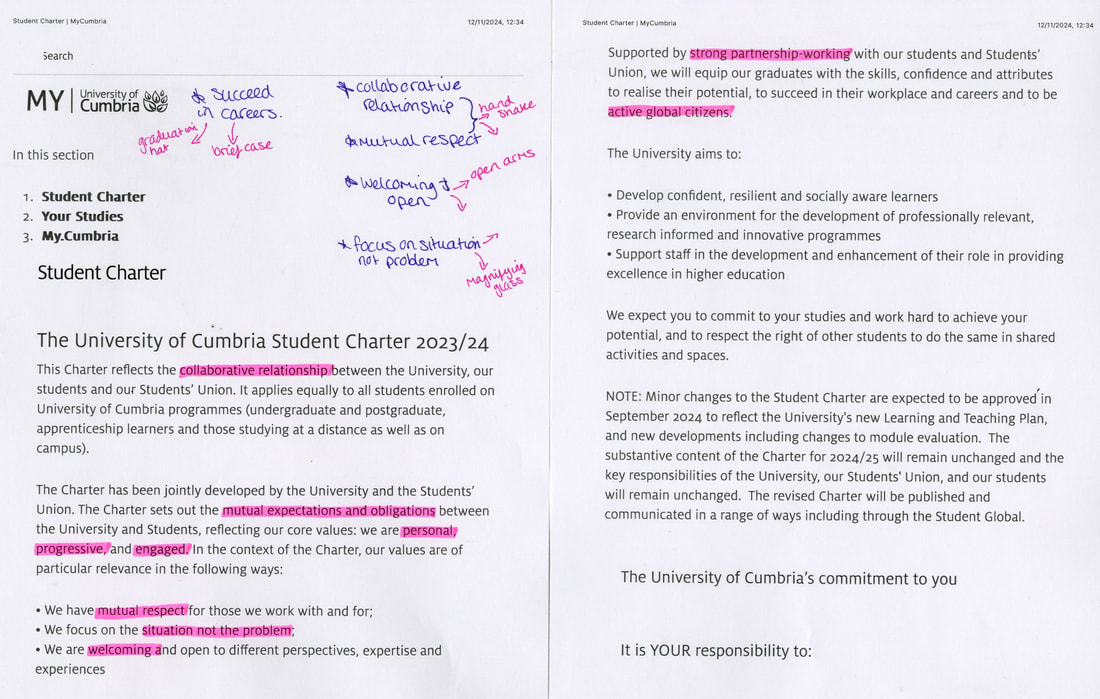 Student Charter | MyCumbria
12/11/2024, 12:34
Search
MY | University of
Cumbria
* Succeed
in careers.
graduation
hat
brief case
* collaborative
relationship
* Mutual respect
hand
shake
* welcoming +
open
open arms
* focus on situation
not problem
Magnifying
glass
In this section
1. Student Charter
2. Your Studies
3. My.Cumbria
Student Charter
The University of Cumbria Student Charter 2023/24
This Charter reflects the collaborative relationship between the University, our
students and our Students' Union. It applies equally to all students enrolled on
University of Cumbria programmes (undergraduate and postgraduate,
apprenticeship learners and those studying at a distance as well as on
campus).
The Charter has been jointly developed by the University and the Students'
Union. The Charter sets out the mutual expectations and obligations between
the University and Students, reflecting our core values: we are personal,
progressive, and engaged. In the context of the Charter, our values are of
particular relevance in the following ways:
• We have mutual respect for those we work with and for;
• We focus on the situation not the problem;
• We are welcoming and open to different perspectives, expertise and
experiences
Student Charter | MyCumbria
12/11/2024, 12:34
Supported by strong partnership-working with our students and Students'
Union, we will equip our graduates with the skills, confidence and attributes
to realise their potential, to succeed in their workplace and careers and to be
active global citizens.
The University aims to:
• Develop confident, resilient and socially aware learners
• Provide an environment for the development of professionally relevant,
research informed and innovative programmes
• Support staff in the development and enhancement of their role in providing
excellence in higher education
We expect you to commit to your studies and work hard to achieve your
potential, and to respect the right of other students to do the same in shared
activities and spaces.
NOTE: Minor changes to the Student Charter are expected to be approved in
September 2024 to reflect the University's new Learning and Teaching Plan,
and new developments including changes to module evaluation. The
substantive content of the Charter for 2024/25 will remain unchanged and the
key responsibilities of the University, our Students' Union, and our students
will remain unchanged. The revised Charter will be published and
communicated in a range of ways including through the Student Global.
The University of Cumbria's commitment to you
It is YOUR responsibility to: